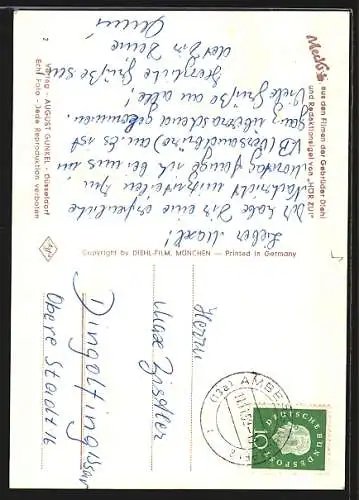 Mecki
aus den Filmen der Gebrüder Diehl
und Redaktionsigel von „HÖR ZU!"
Lieber Maxl!
Ich habe Dir eine erfreuliche
Nachricht mitzuteilen. Am
Montag fängt sich bei uns im
VB (Versandbüro) an. Es ist
ganz überraschend gekommen.
Viele Grüße an alle,
herzliche Grüße sendet Dir Deine
Anni
Verlag - AUGUST GUNKEL - Düsseldorf
Echt Foto - Jede Reproduktion verboten
2
Copyright by DIEHL-FILM, MÜNCHEN — Printed in Germany
Herrn
Max Zissler
Dingolfing/Isar
Obere Stadt 16
(13a) AMBERG
DEUTSCHE BUNDESPOST
10